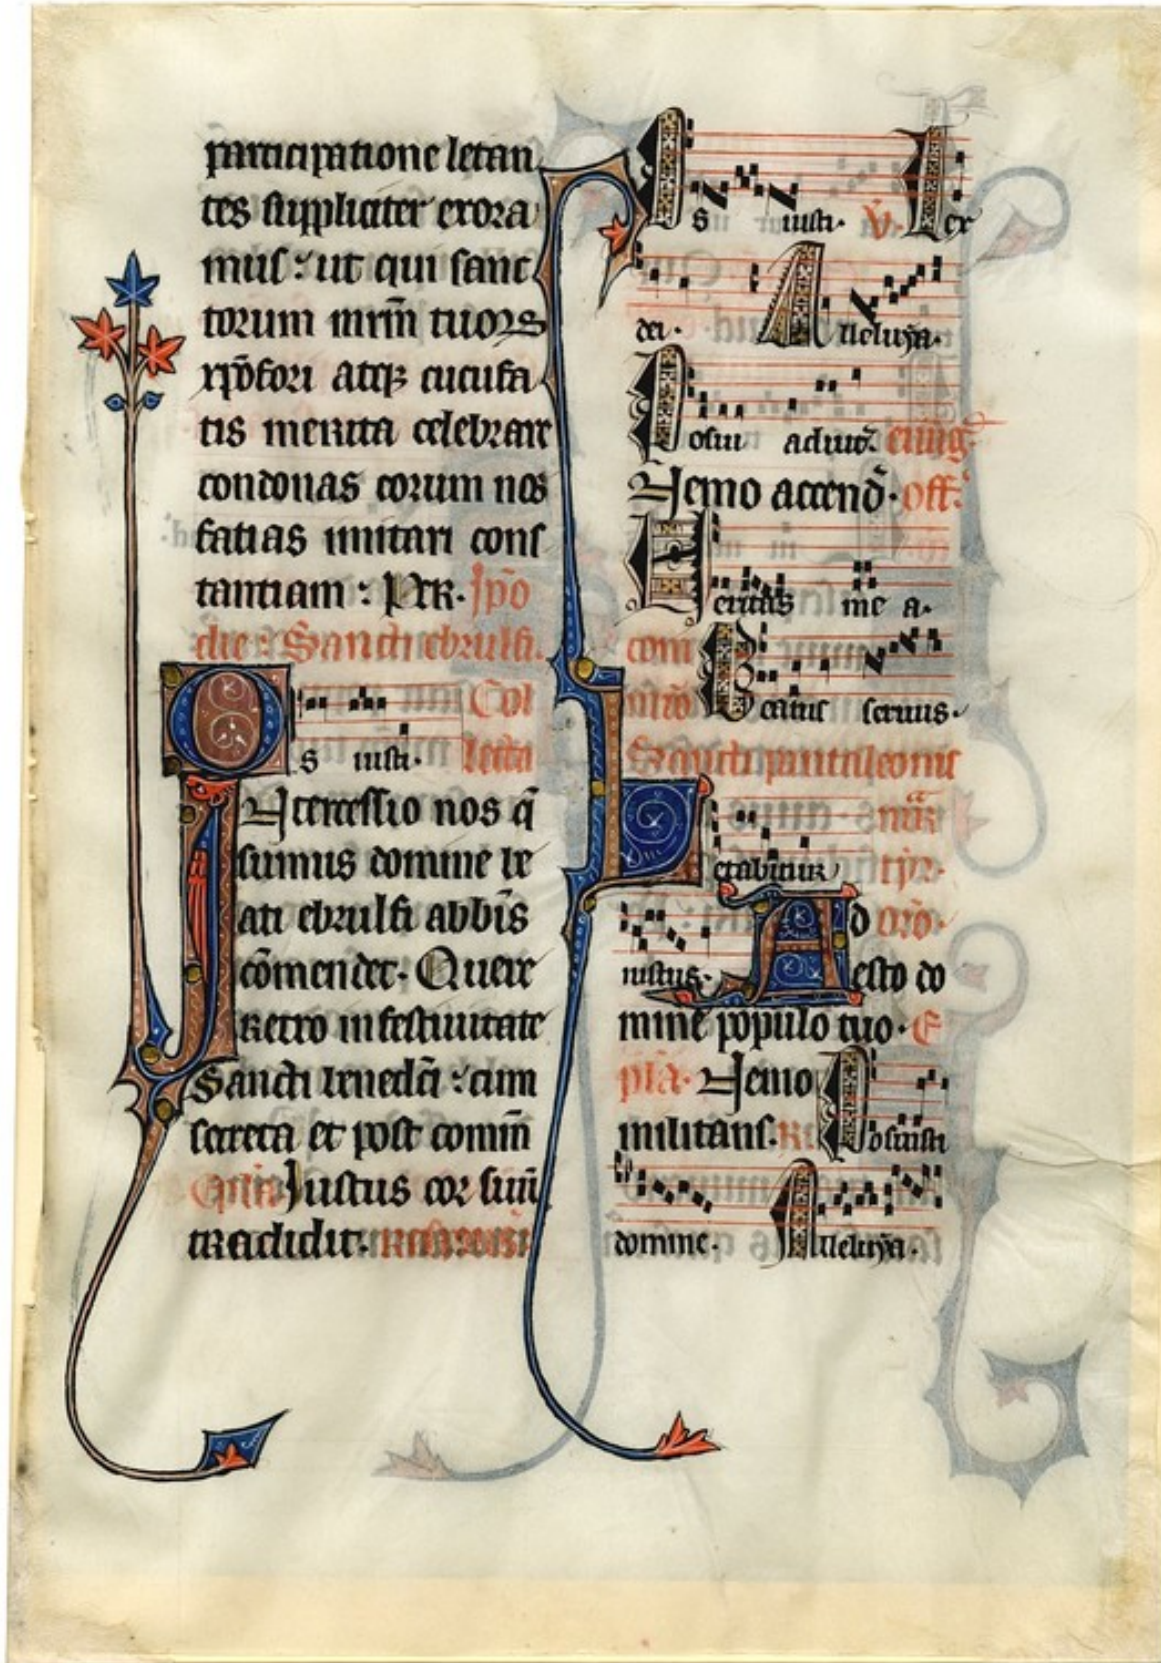 participatione letan
tes suppliciter exora
mus : ut qui sanc
torum mr̄m tuoꝝ
xp̄ofori atqꝫ cucufa
tis merita celebrare
condonas eorum nos
fatias imitari cons
tantiam : Per. Ip̄o
die : Sancti ebrulfi.
Os iusti. Col
lecta
Intercessio nos q̄
sumus domine be
ati ebrulfi abb̄is
cōmendet. Quere
retro in festiuitate
Sancti benedc̄i : cum
secreta et post comm̄
Ep̄la Iustus cor suū
tradidit.
Os iusti. V̄. Lex
dei. Alleluya.
Posui adiut̄. euūḡ
Nemo accend̄. off̄.
Ueritas mea.
com
Beatus seruus.
Sancti pantaleonis
mar̄
Letabitur tyr.
iustus. Ad oro.
Adesto do
mine populo tuo. E
pl̄a. Nemo
militans. R̄ Posuisti
domine. Alleluya.